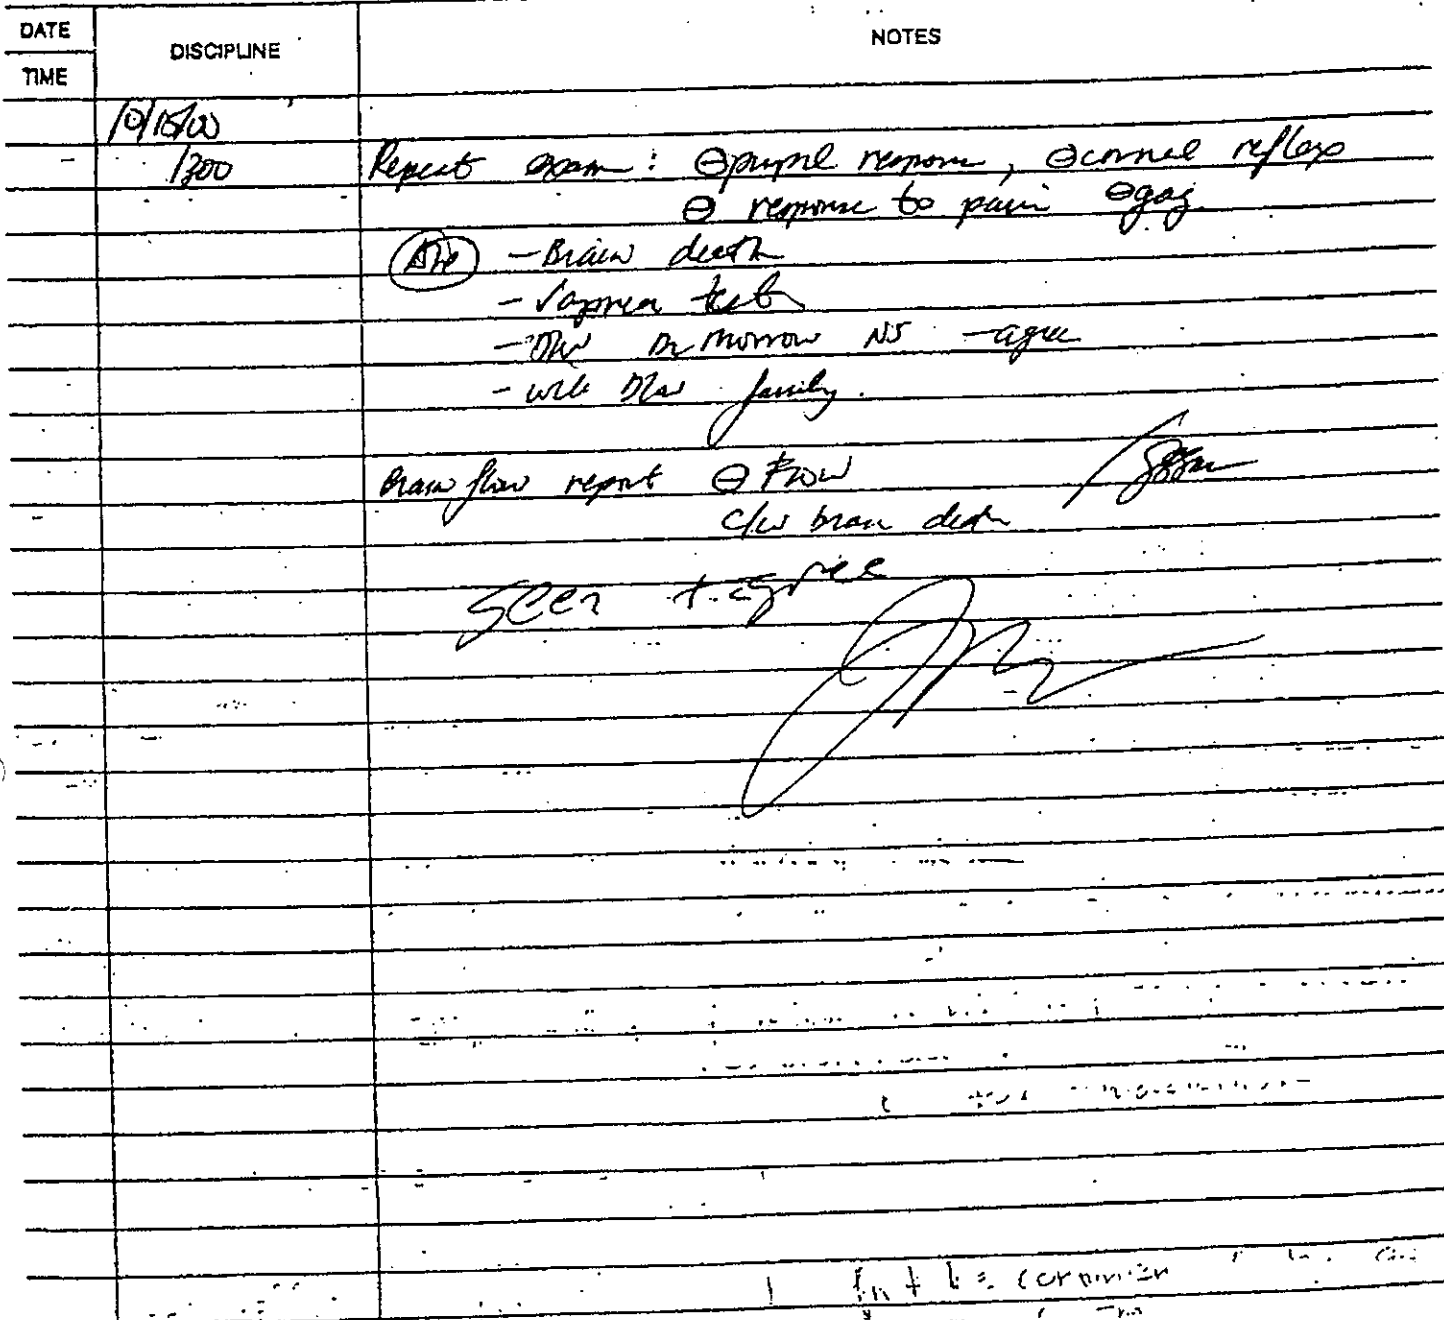 DATE
DISCIPLINE
NOTES
TIME
10/15/00
1300 Repeat exam : ⊖ pupil response, ⊖ corneal reflex
⊖ response to pain ⊖ gag
- Brain death
- √ apnea test
- D/W Dr Morrow NS - agree
- will D/w family.
Brain flow report ⊖ Flow
c/w brain death
Seen + agree